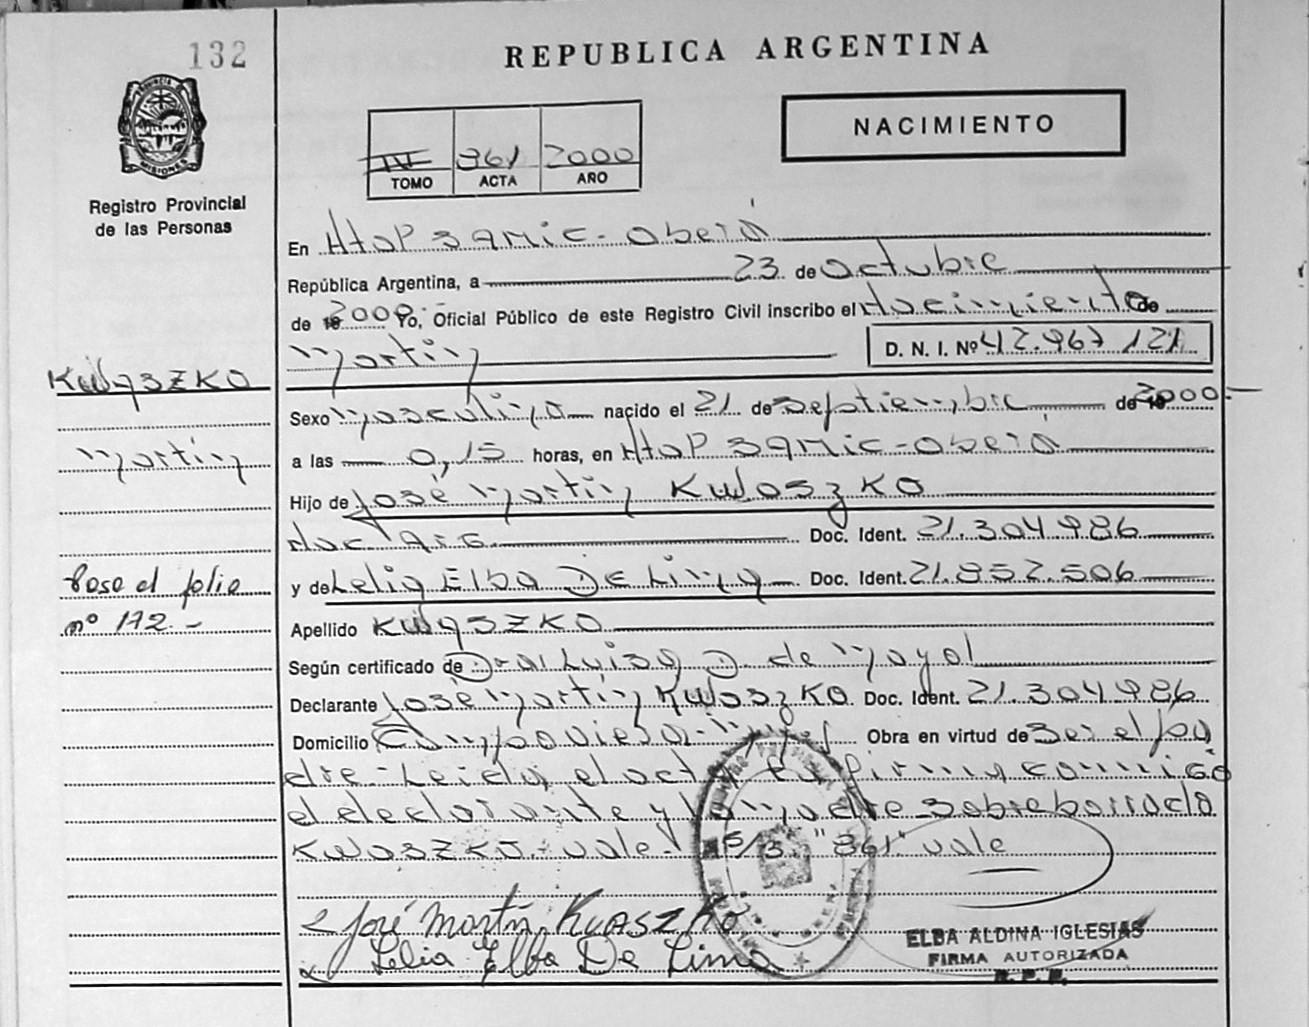 132
REPUBLICA ARGENTINA
NACIMIENTO
PROVINCIA DE MISIONES
Registro Provincial
de las Personas
IV 361 2000
TOMO ACTA AÑO
En Htop samic - oberá
República Argentina, a 23 de octubre
de 2000. Yo, Oficial Público de este Registro Civil inscribo el Nacimiento de
Martin D. N. I. Nº 42.967 121
Kwaszko
Sexo Masculino nacido el 21 de septiembre de 2000.-
Martin
a las 0,15 horas, en Htop samic - oberá
Hijo de José Martin Kwaszko
Nac. Arg. Doc. Ident. 21.304.986
y de Lelia Elba De Lima Doc. Ident. 21.852.506
Pase al folio
nº 172.-
Apellido Kwaszko
Según certificado de Dra. Luisa D. de Mayol
Declarante José Martin Kwaszko Doc. Ident. 21.304.986
Domicilio Campo viera - Obra en virtud de ser el pa
dre - Leida el acta la firma conmigo
el declarante y la madre sobreborrado
Kwaszko - vale. "361" vale
José Martín Kwaszko
Lelia Elba De Lima
ELBA ALDINA IGLESIAS
FIRMA AUTORIZADA
R. P. P.